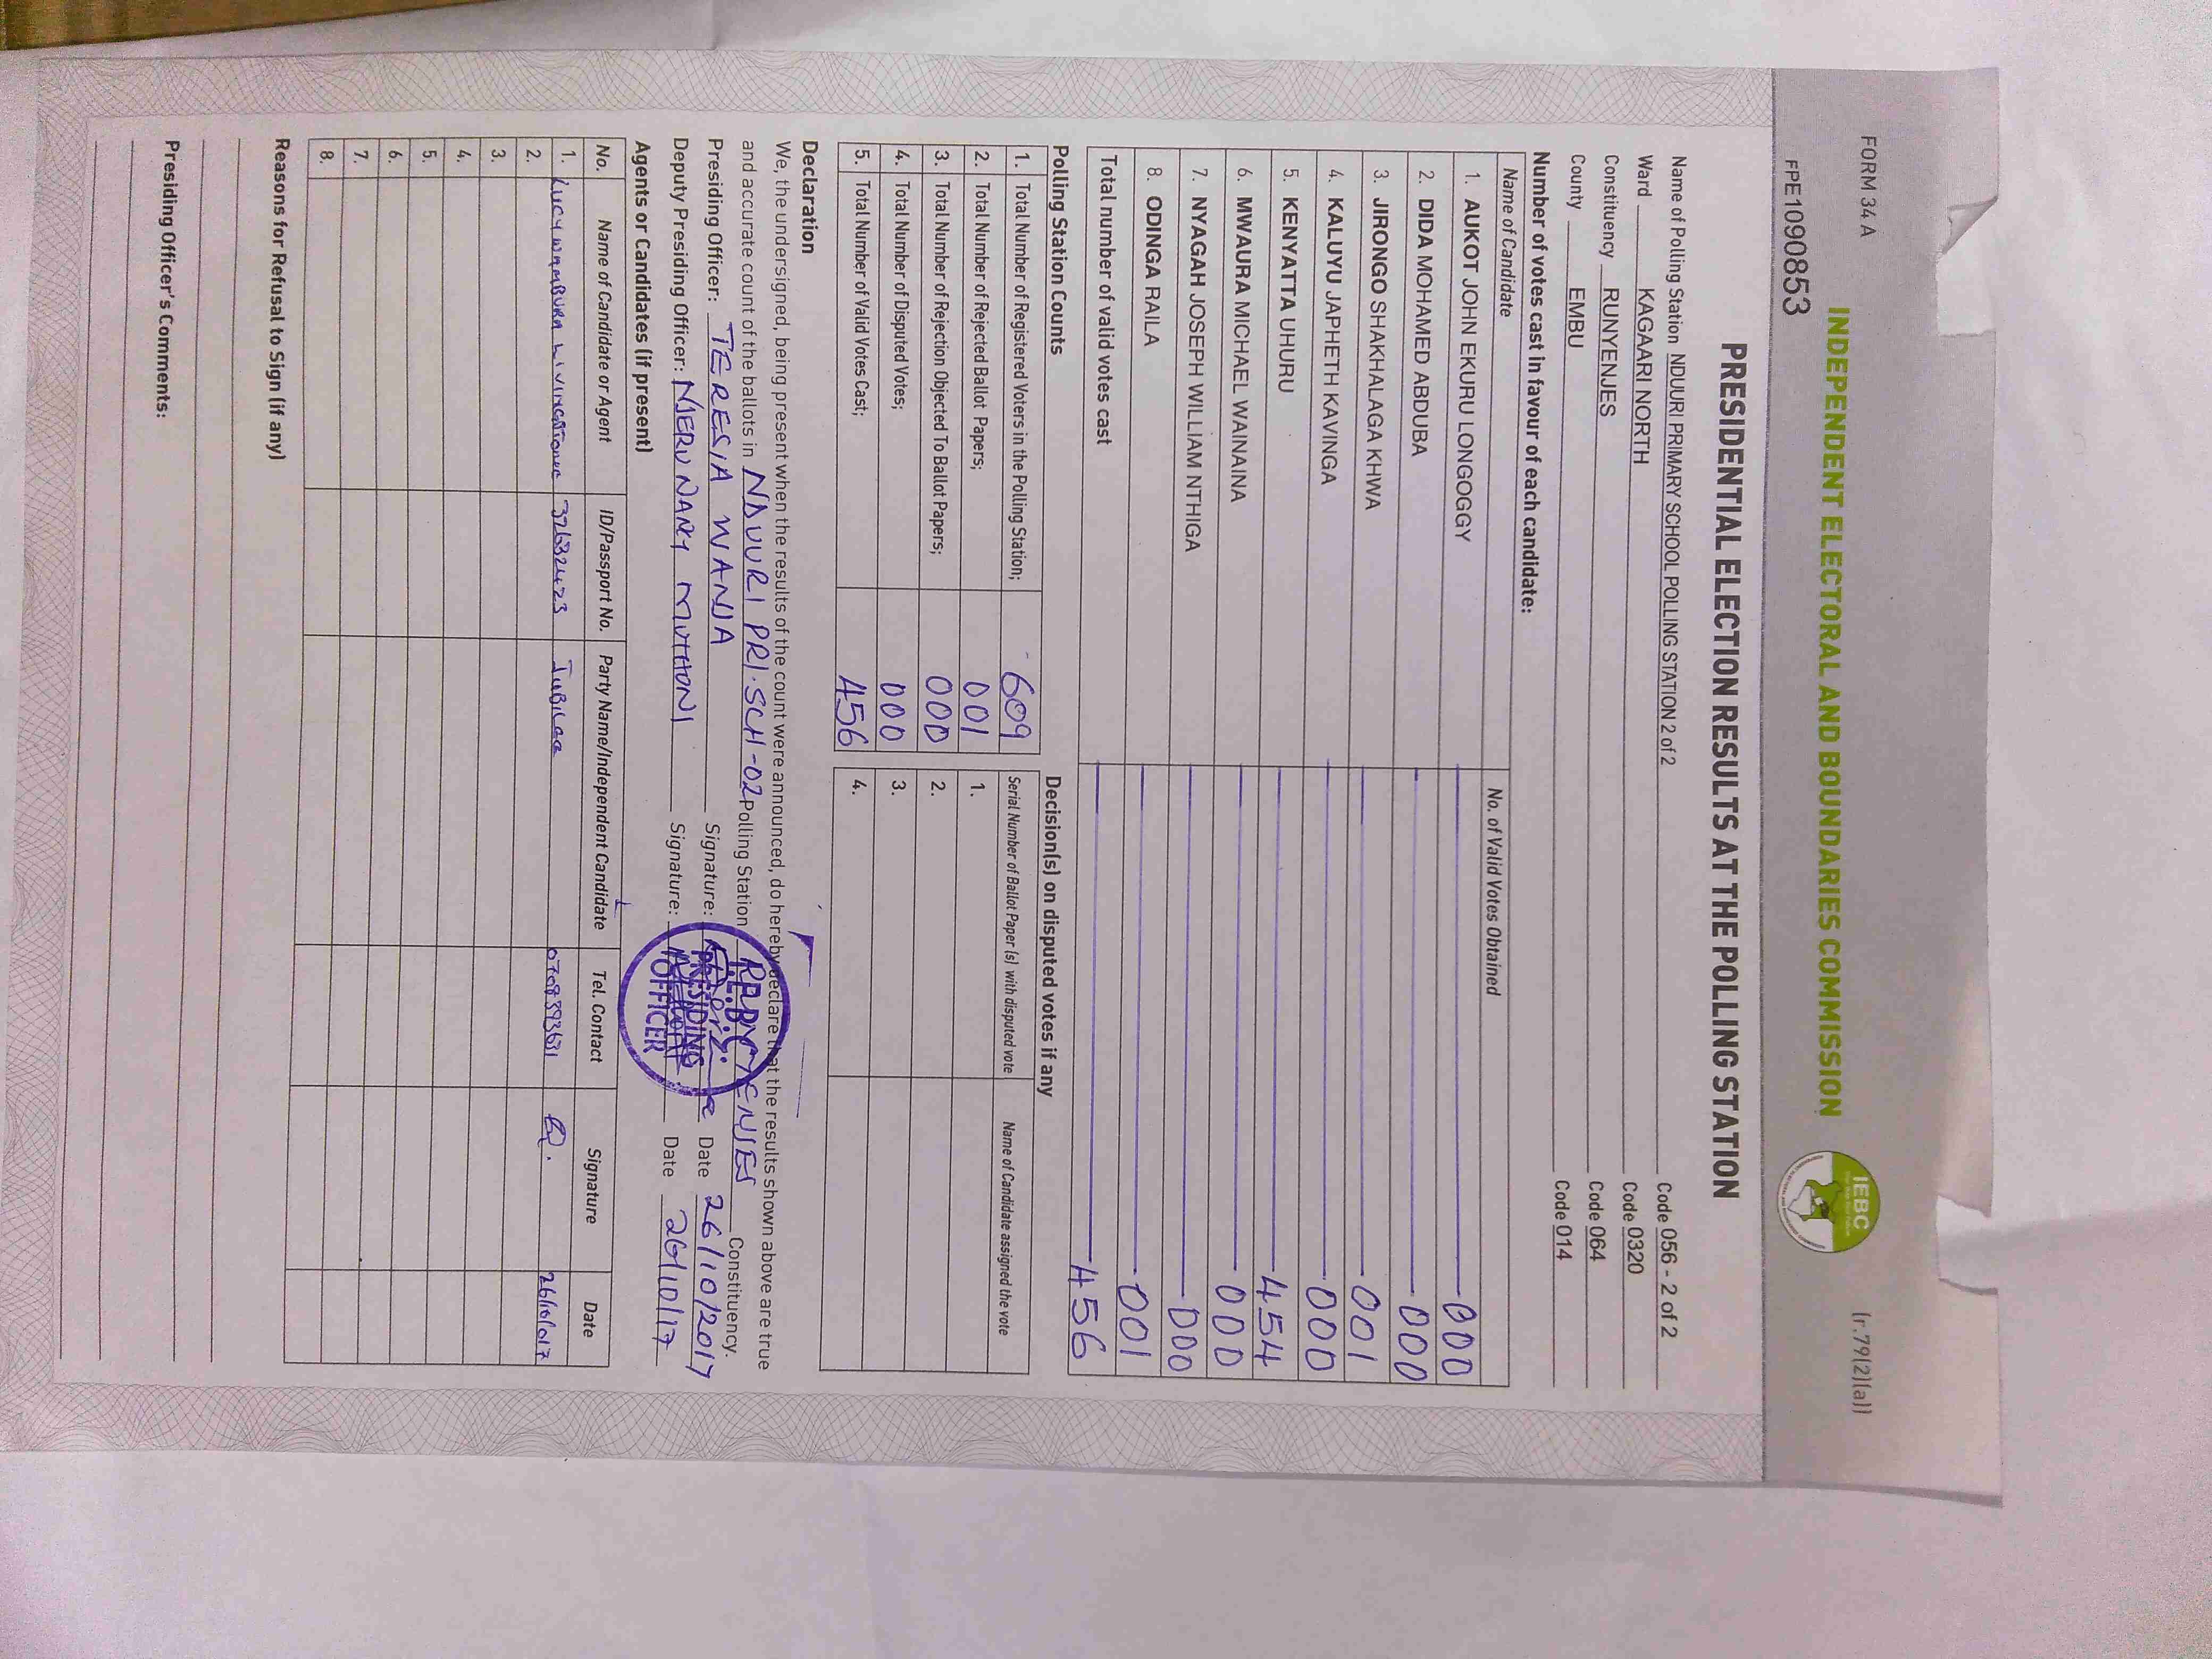 FORM 34 A
(r.79(2)(a))
INDEPENDENT ELECTORAL AND BOUNDARIES COMMISSION
IEBC
FPE1090853
PRESIDENTIAL ELECTION RESULTS AT THE POLLING STATION
Name of Polling Station NDUURI PRIMARY SCHOOL POLLING STATION 2 of 2 Code 056 - 2 of 2
Ward KAGAARI NORTH Code 0320
Constituency RUNYENJES Code 064
County EMBU Code 014
Number of votes cast in favour of each candidate:
Name of Candidate No. of Valid Votes Obtained
1. AUKOT JOHN EKURU LONGOGGY 000
2. DIDA MOHAMED ABDUBA 000
3. JIRONGO SHAKHALAGA KHWA 001
4. KALUYU JAPHETH KAVINGA 000
5. KENYATTA UHURU 454
6. MWAURA MICHAEL WAINAINA 000
7. NYAGAH JOSEPH WILLIAM NTHIGA 000
8. ODINGA RAILA 001
Total number of valid votes cast 456
Polling Station Counts
1. Total Number of Registered Voters in the Polling Station; 609
2. Total Number of Rejected Ballot Papers; 001
3. Total Number of Rejection Objected To Ballot Papers; 000
4. Total Number of Disputed Votes; 000
5. Total Number of Valid Votes Cast; 456
Decision(s) on disputed votes if any
Serial Number of Ballot Paper (s) with disputed vote Name of Candidate assigned the vote
1.
2.
3.
4.
Declaration
We, the undersigned, being present when the results of the count were announced, do hereby declare that the results shown above are true
and accurate count of the ballots in NDUURI PRI. SCH - 02 Polling Station Constituency.
Presiding Officer: TERESIA WANJA Signature: Date 26/10/2017
Deputy Presiding Officer: NJERU MARY MUTHONI Signature: Date 26/10/17
PRESIDING
OFFICER
Agents or Candidates (if present)
No. Name of Candidate or Agent ID/Passport No. Party Name/Independent Candidate Tel. Contact Signature Date
1. LUCY WAMBURA Jubilee
2.
3.
4.
5.
6.
7.
8.
Reasons for Refusal to Sign (if any)
Presiding Officer's Comments: